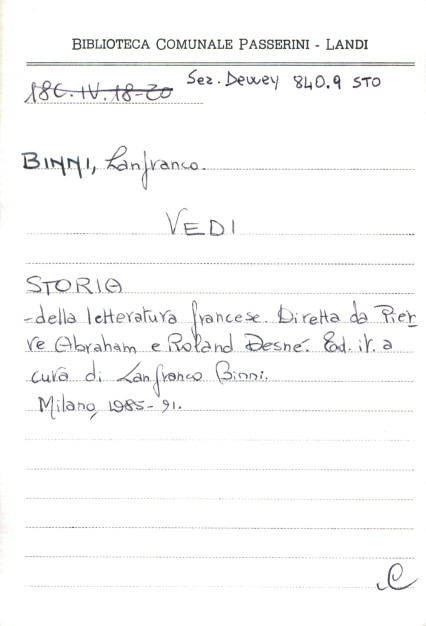 BIBLIOTECA COMUNALE PASSERINI - LANDI
18C.IV.18-20 Sez. Dewey 840.9 STO
BINNI, Lanfranco.
VEDI
STORIA
-della letteratura francese. Diretta da Pier
re Abraham e Roland Desné. Ed. it. a
cura di Lanfranco Binni.
Milano, 1985-91.
C